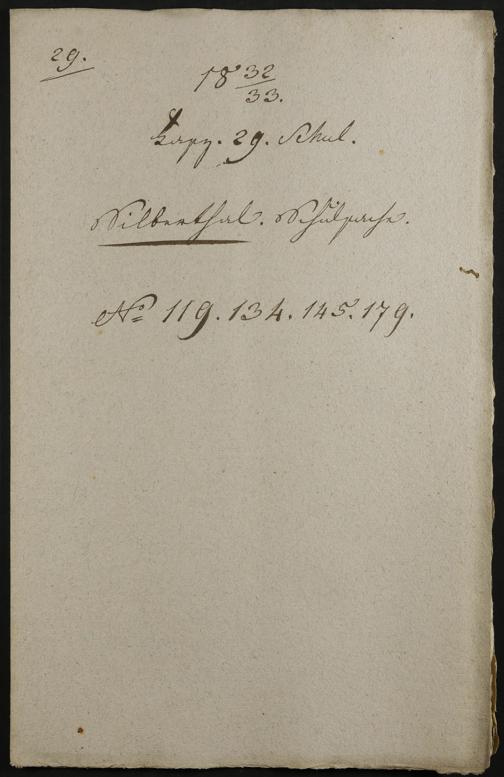 29.
18 32
33.
29. Schul.
Silberthal. Schulsache.
No 119. 134. 145. 179.